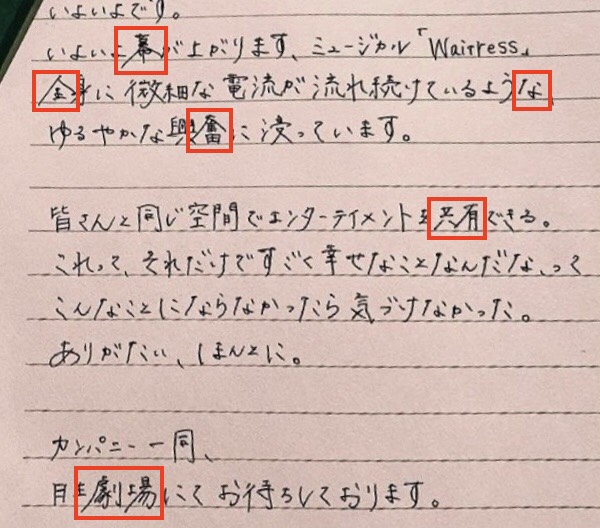 いよいよです。
いよいよ幕が上がります、ミュージカル「Waitress」
全身に微細な電流が流れ続けているような、
ゆるやかな興奮に浸っています。
皆さんと同じ空間でエンターテイメントを共有できる。
これって、それだけですごく幸せなことなんだな、って
こんなことにならなかったら気づけなかった。
ありがたい、ほんとに。
カンパニー一同、
日生劇場にてお待ちしております。